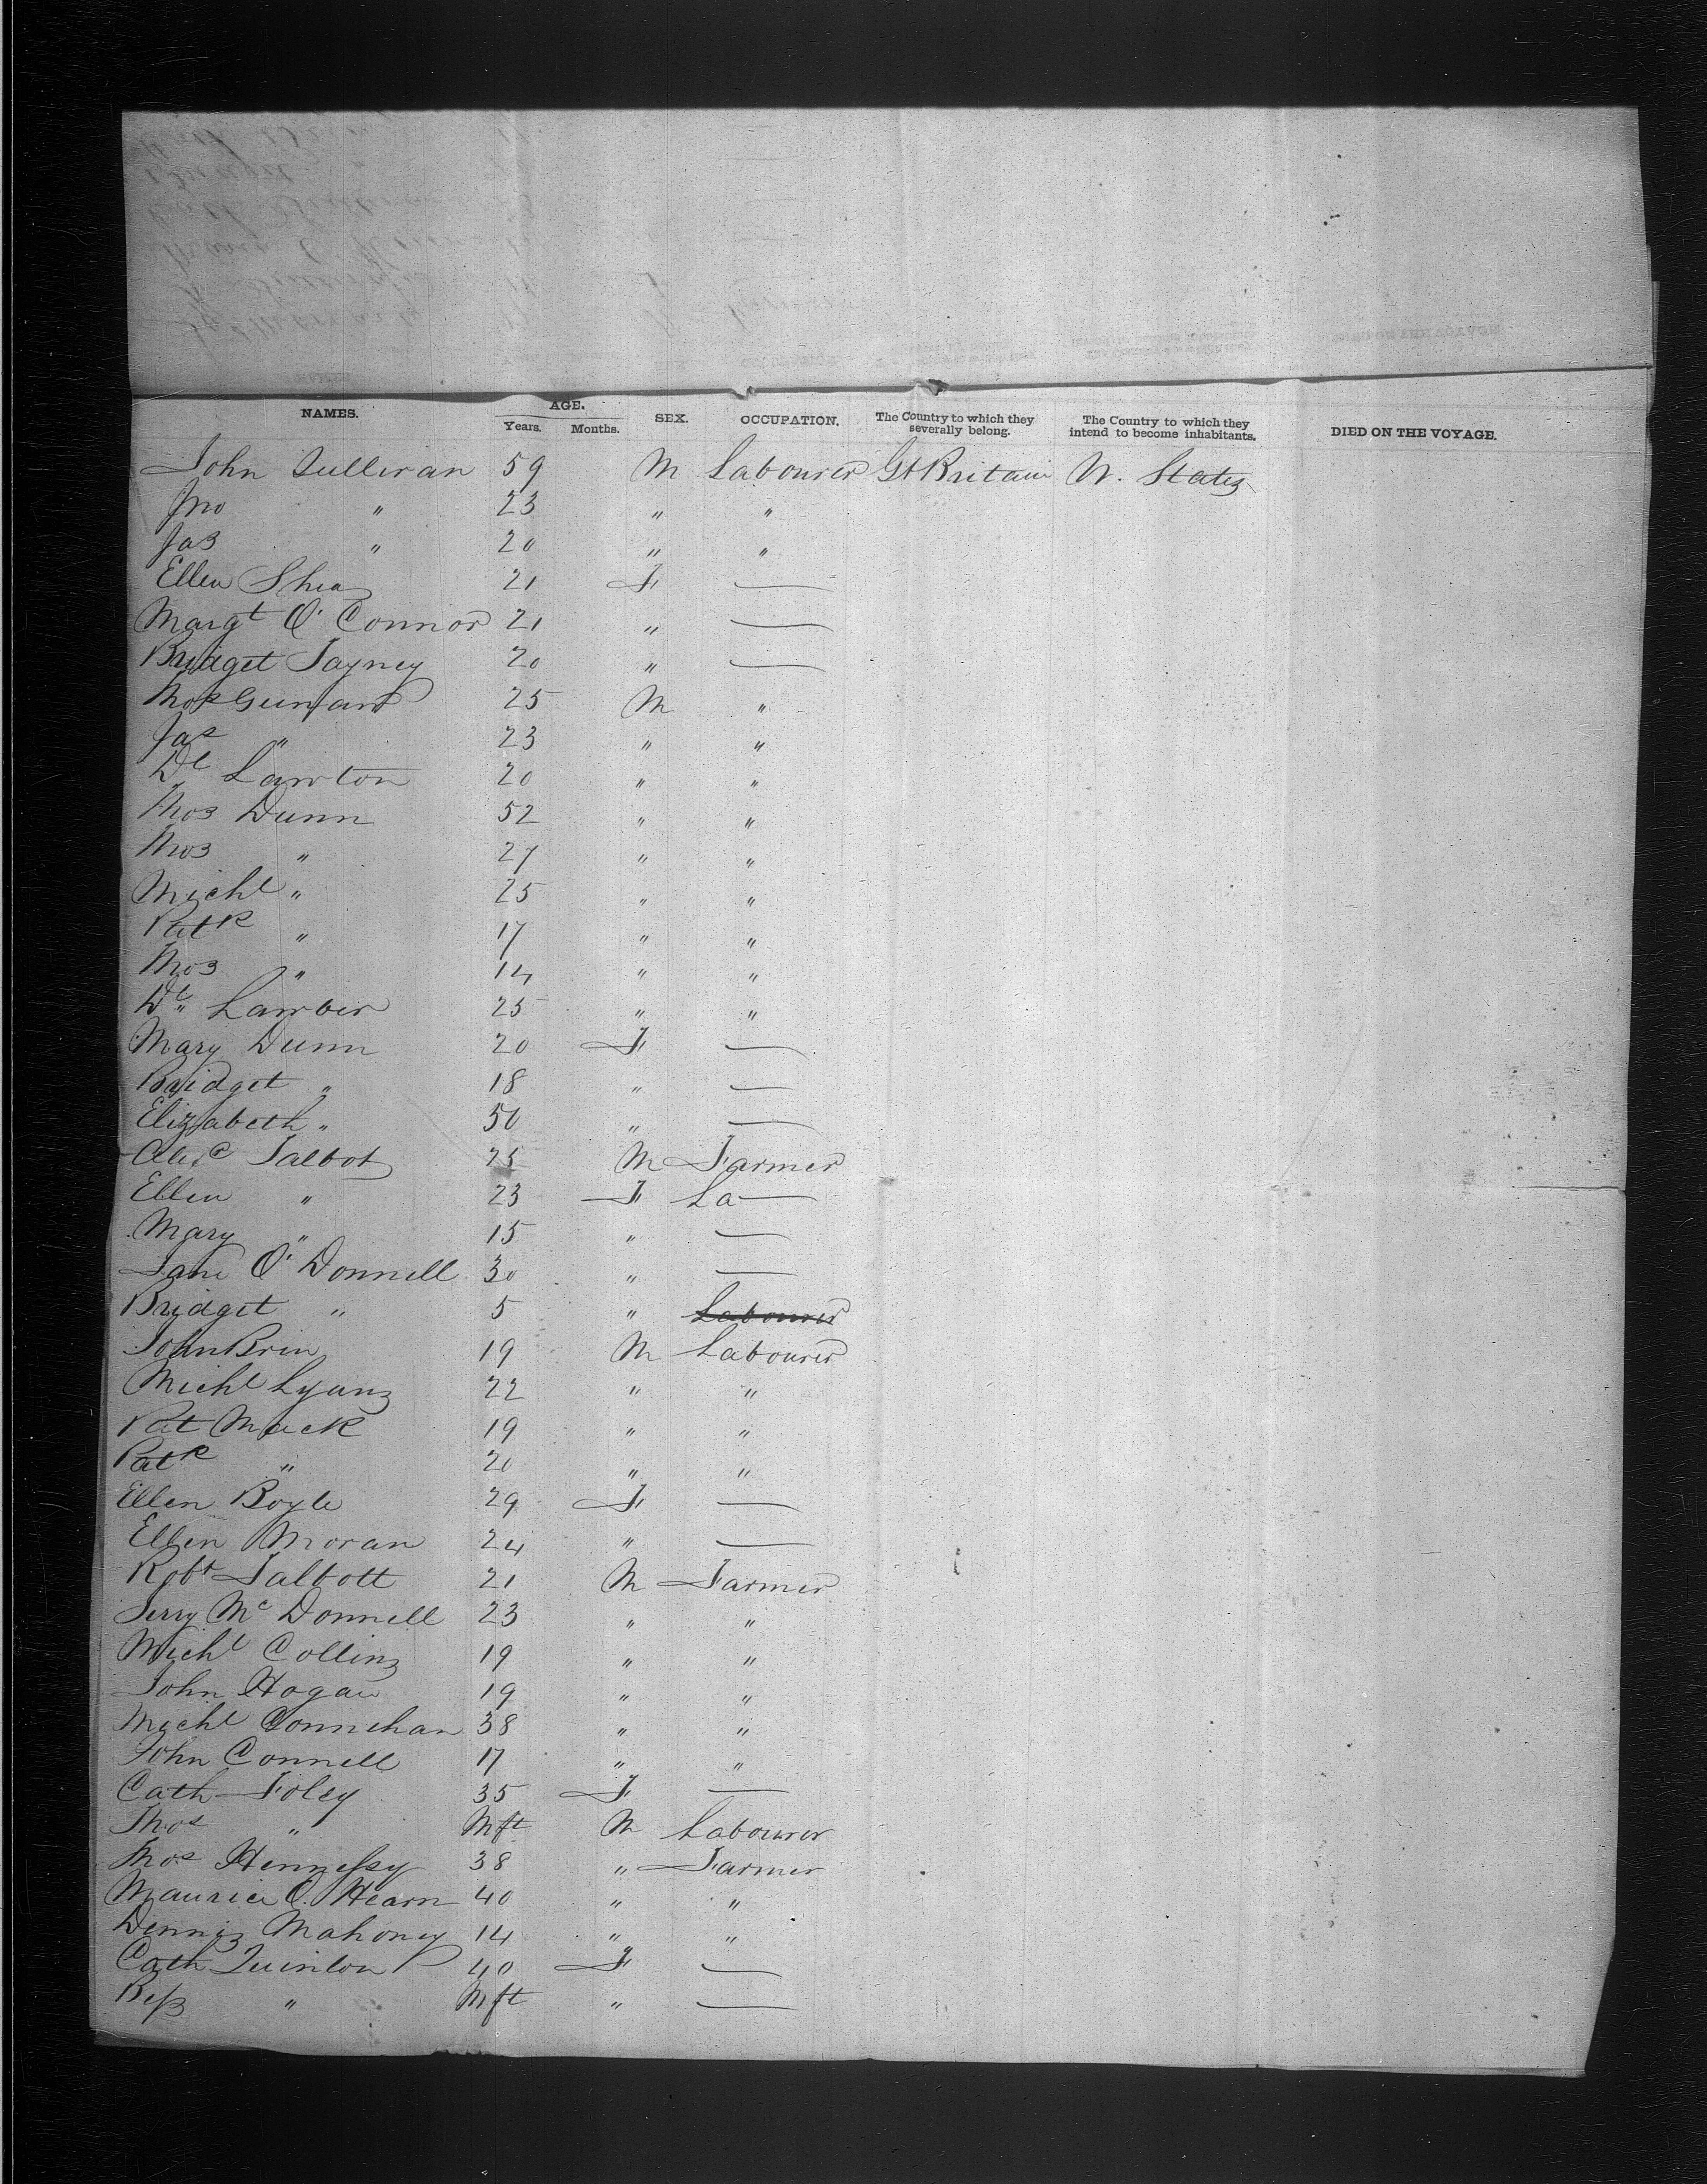 NAMES. AGE. Years. Months. SEX. OCCUPATION. The Country to which they severally belong. The Country to which they intend to become inhabitants. DIED ON THE VOYAGE.
John Sullivan 59 M Labourer Gt Britain U. States
Jno " 23 " "
Jas " 20 " "
Ellen Shea 21 F —
Margt O'Connor 21 " —
Bridget 20 " —
Thos 25 M "
Jas " 23 " "
Dl Lawton 20 " "
Thos Dunn 52 " "
Thos " 27 " "
Michl " 25 " "
Patk " 17 " "
Thos " 14 " "
Dl Lawber 25 " "
Mary Dunn 20 F —
Bridget " 18 " —
Elizabeth " 50 " —
Talbot 25 M Farmer
Ellen " 23 F La—
Mary " 15 " —
Jane O'Donnell 30 " —
Bridget " 5 " Labourer
John Brin 19 M Labourer
Michl Lyans 22 " "
Pat Mack 19 " "
Patk " 20 " "
Ellen Boyle 29 F —
Ellen Moran 24 " —
Robt Talbott 21 M Farmer
Jerry McDonnell 23 " "
Michl Collins 19 " "
John Hogan 19 " "
Michl Connehan 38 " "
John Connell 17 " "
Cath Foley 35 F —
Thos " Inft M Labourer
Thos Hennessy 38 " Farmer
Maurice O.Hearn 40 " "
Dennis Mahoney 14 " "
Cath Quinlon 40 F —
Bess " Inft " —